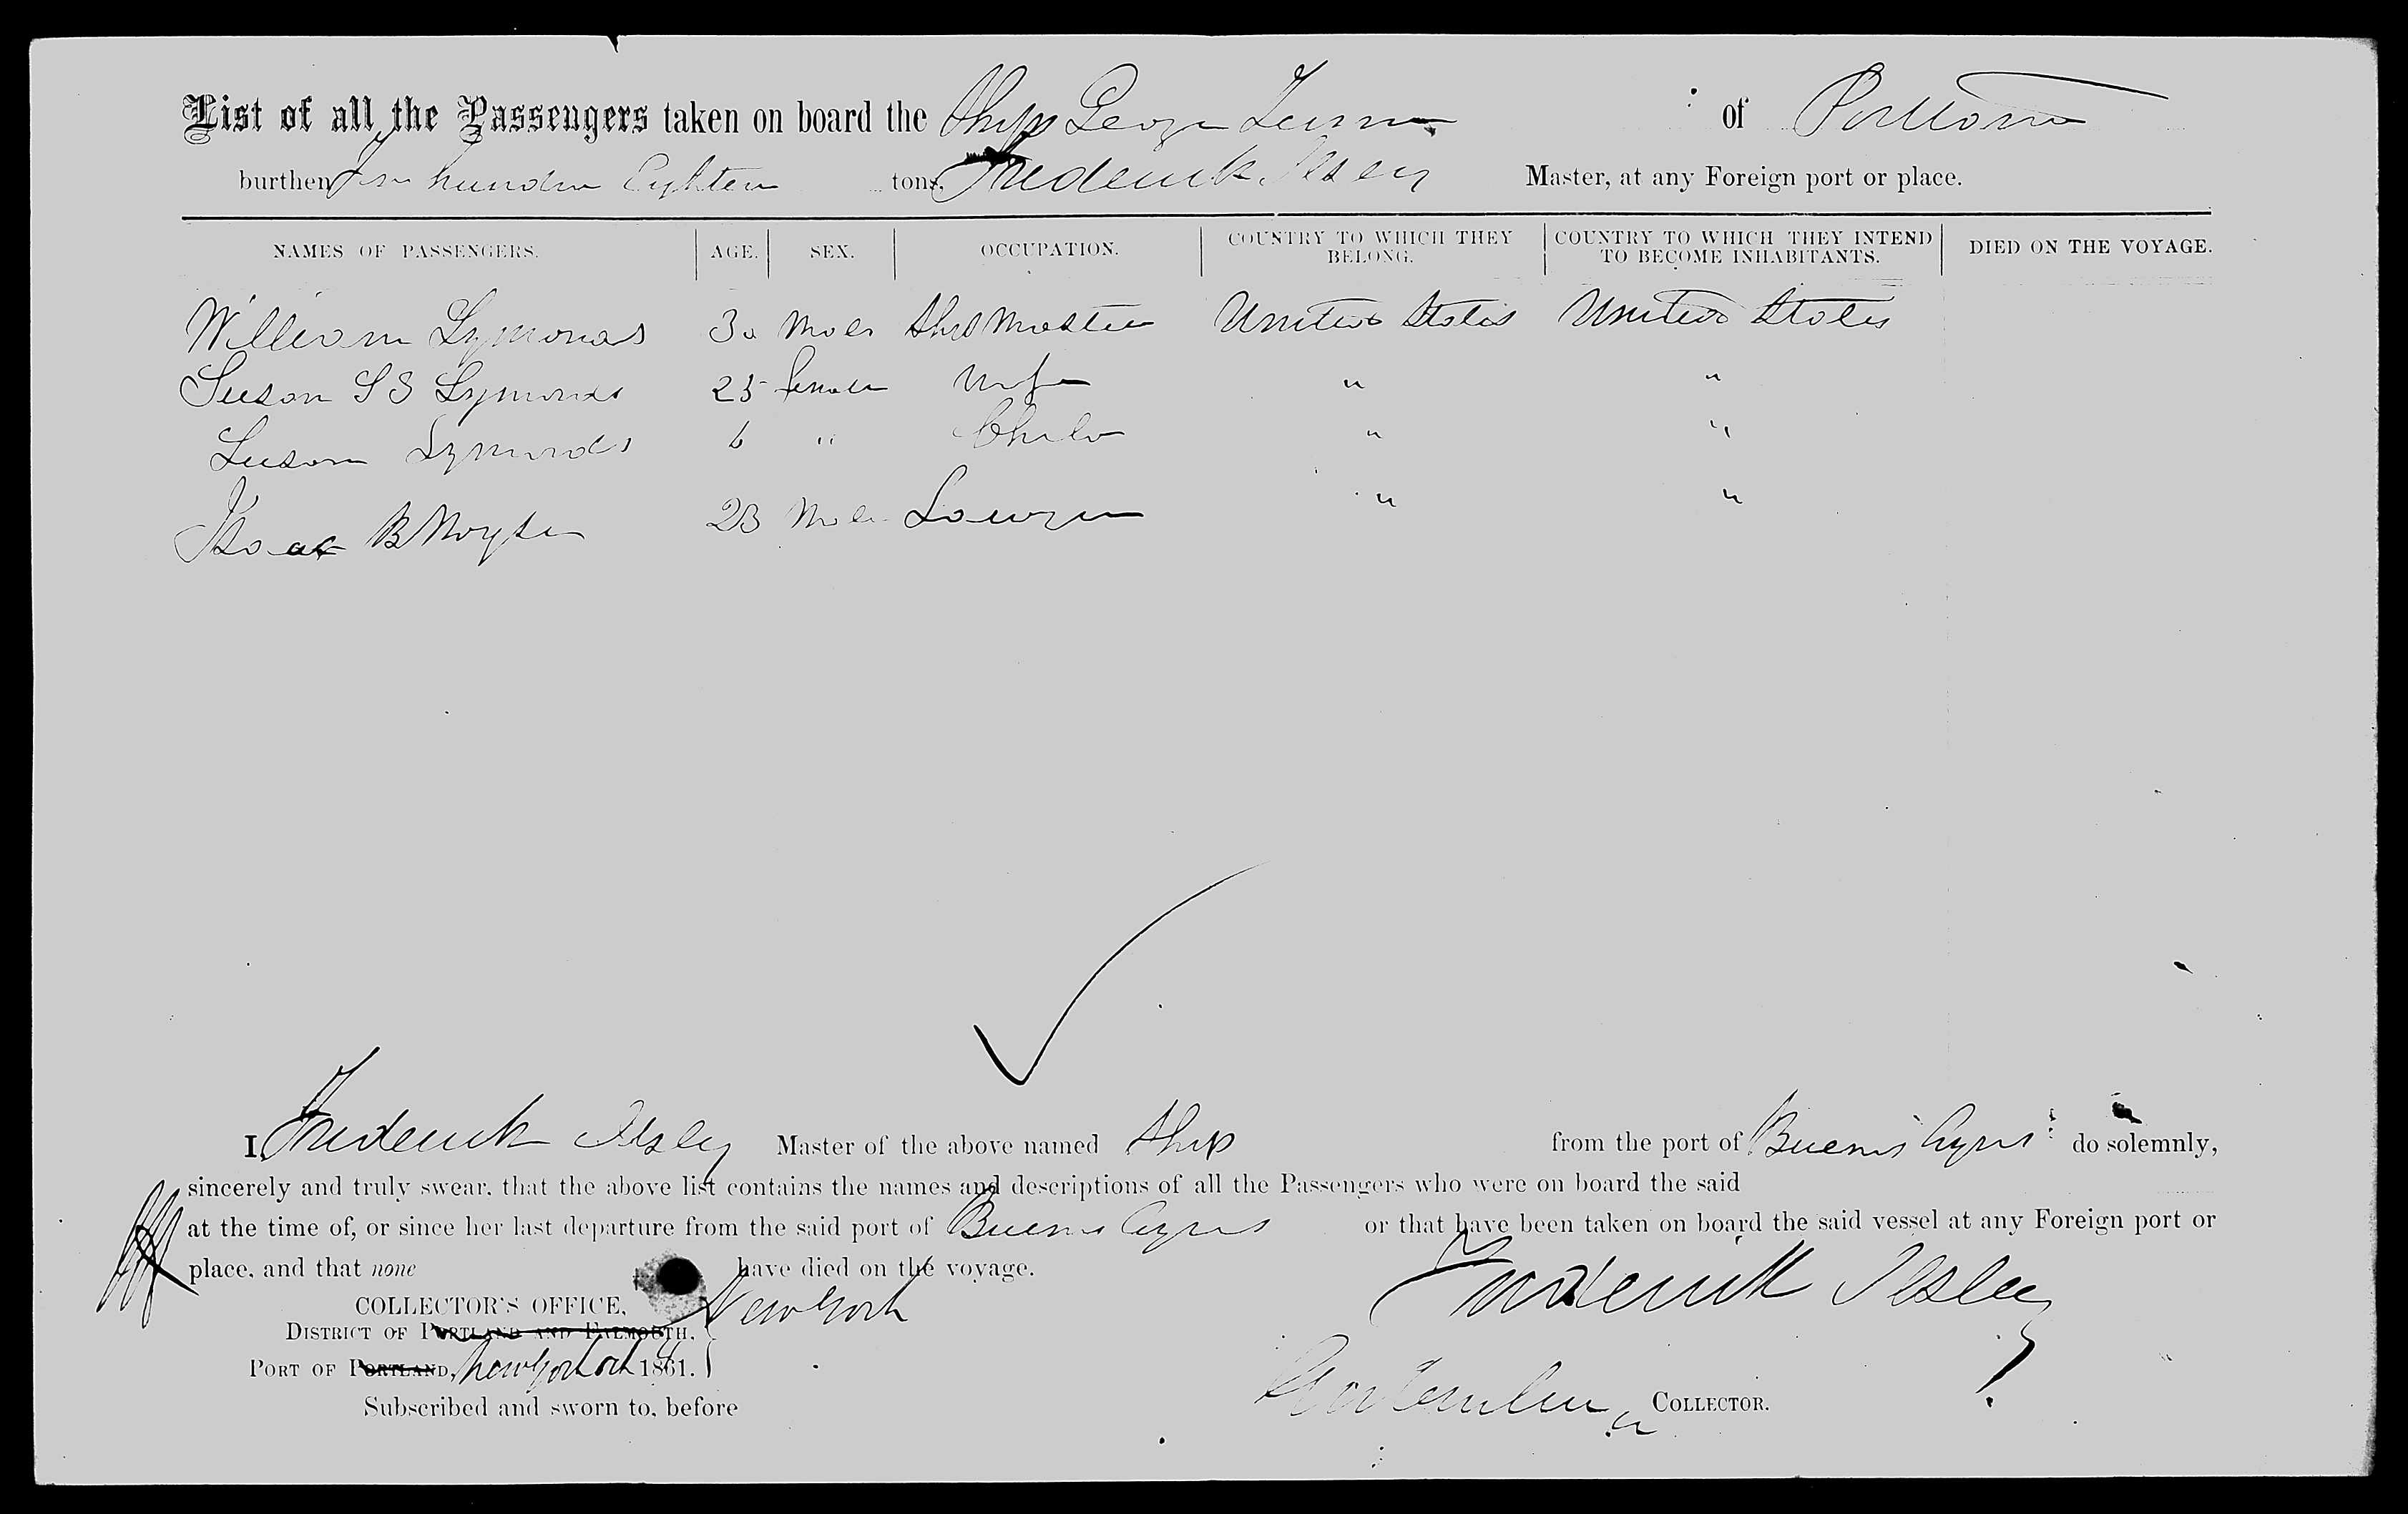 List of all the Passengers taken on board the Ship George Turner of Portland
burthen hundred Eighteen tons, Frederick Ilsley Master, at any Foreign port or place.
NAMES OF PASSENGERS. AGE. SEX. OCCUPATION. COUNTRY TO WHICH THEY BELONG. COUNTRY TO WHICH THEY INTEND TO BECOME INHABITANTS. DIED ON THE VOYAGE.
William Symonds 30 Male Ship Master United States United States
Susan S S Symonds 25 female Wife " "
Susan Symonds 6 " Child " "
Isaac B 23 Male " "
I, Frederick Ilsley Master of the above named Ship from the port of Buenos Ayres do solemnly,
sincerely and truly swear, that the above list contains the names and descriptions of all the Passengers who were on board the said
at the time of, or since her last departure from the said port of Buenos Ayres or that have been taken on board the said vessel at any Foreign port or
place, and that none have died on the voyage.
Frederick Ilsley
COLLECTOR'S OFFICE,
DISTRICT OF PORTLAND AND FALMOUTH, New York
PORT OF PORTLAND, New York Oct 1861.
Subscribed and sworn to, before COLLECTOR.